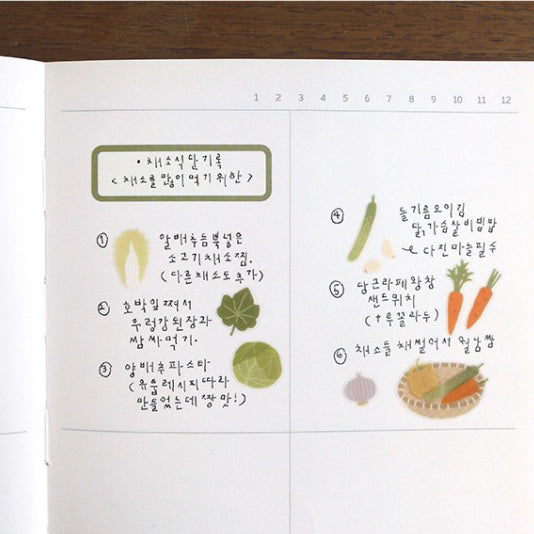 1 2 3 4 5 6 7 8 9 10 11 12
• 채소식단기록
< 채소를 많이 먹기 위한 >
① 알배추 듬뿍 넣은
소고기채소찜.
(다른 채소도 추가)
② 호박잎 쪄서
우렁강된장과
쌈 싸먹기.
③ 양배추파스타-
(유튭레시피따라
만들었는데 짱맛!)
④ 들기름오이김
닭가슴살비빔밥
다진마늘필수
⑤ 당근라페왕창
샌드위치
(+루꼴라두)
⑥ 채소들 채썰어서 월남쌈